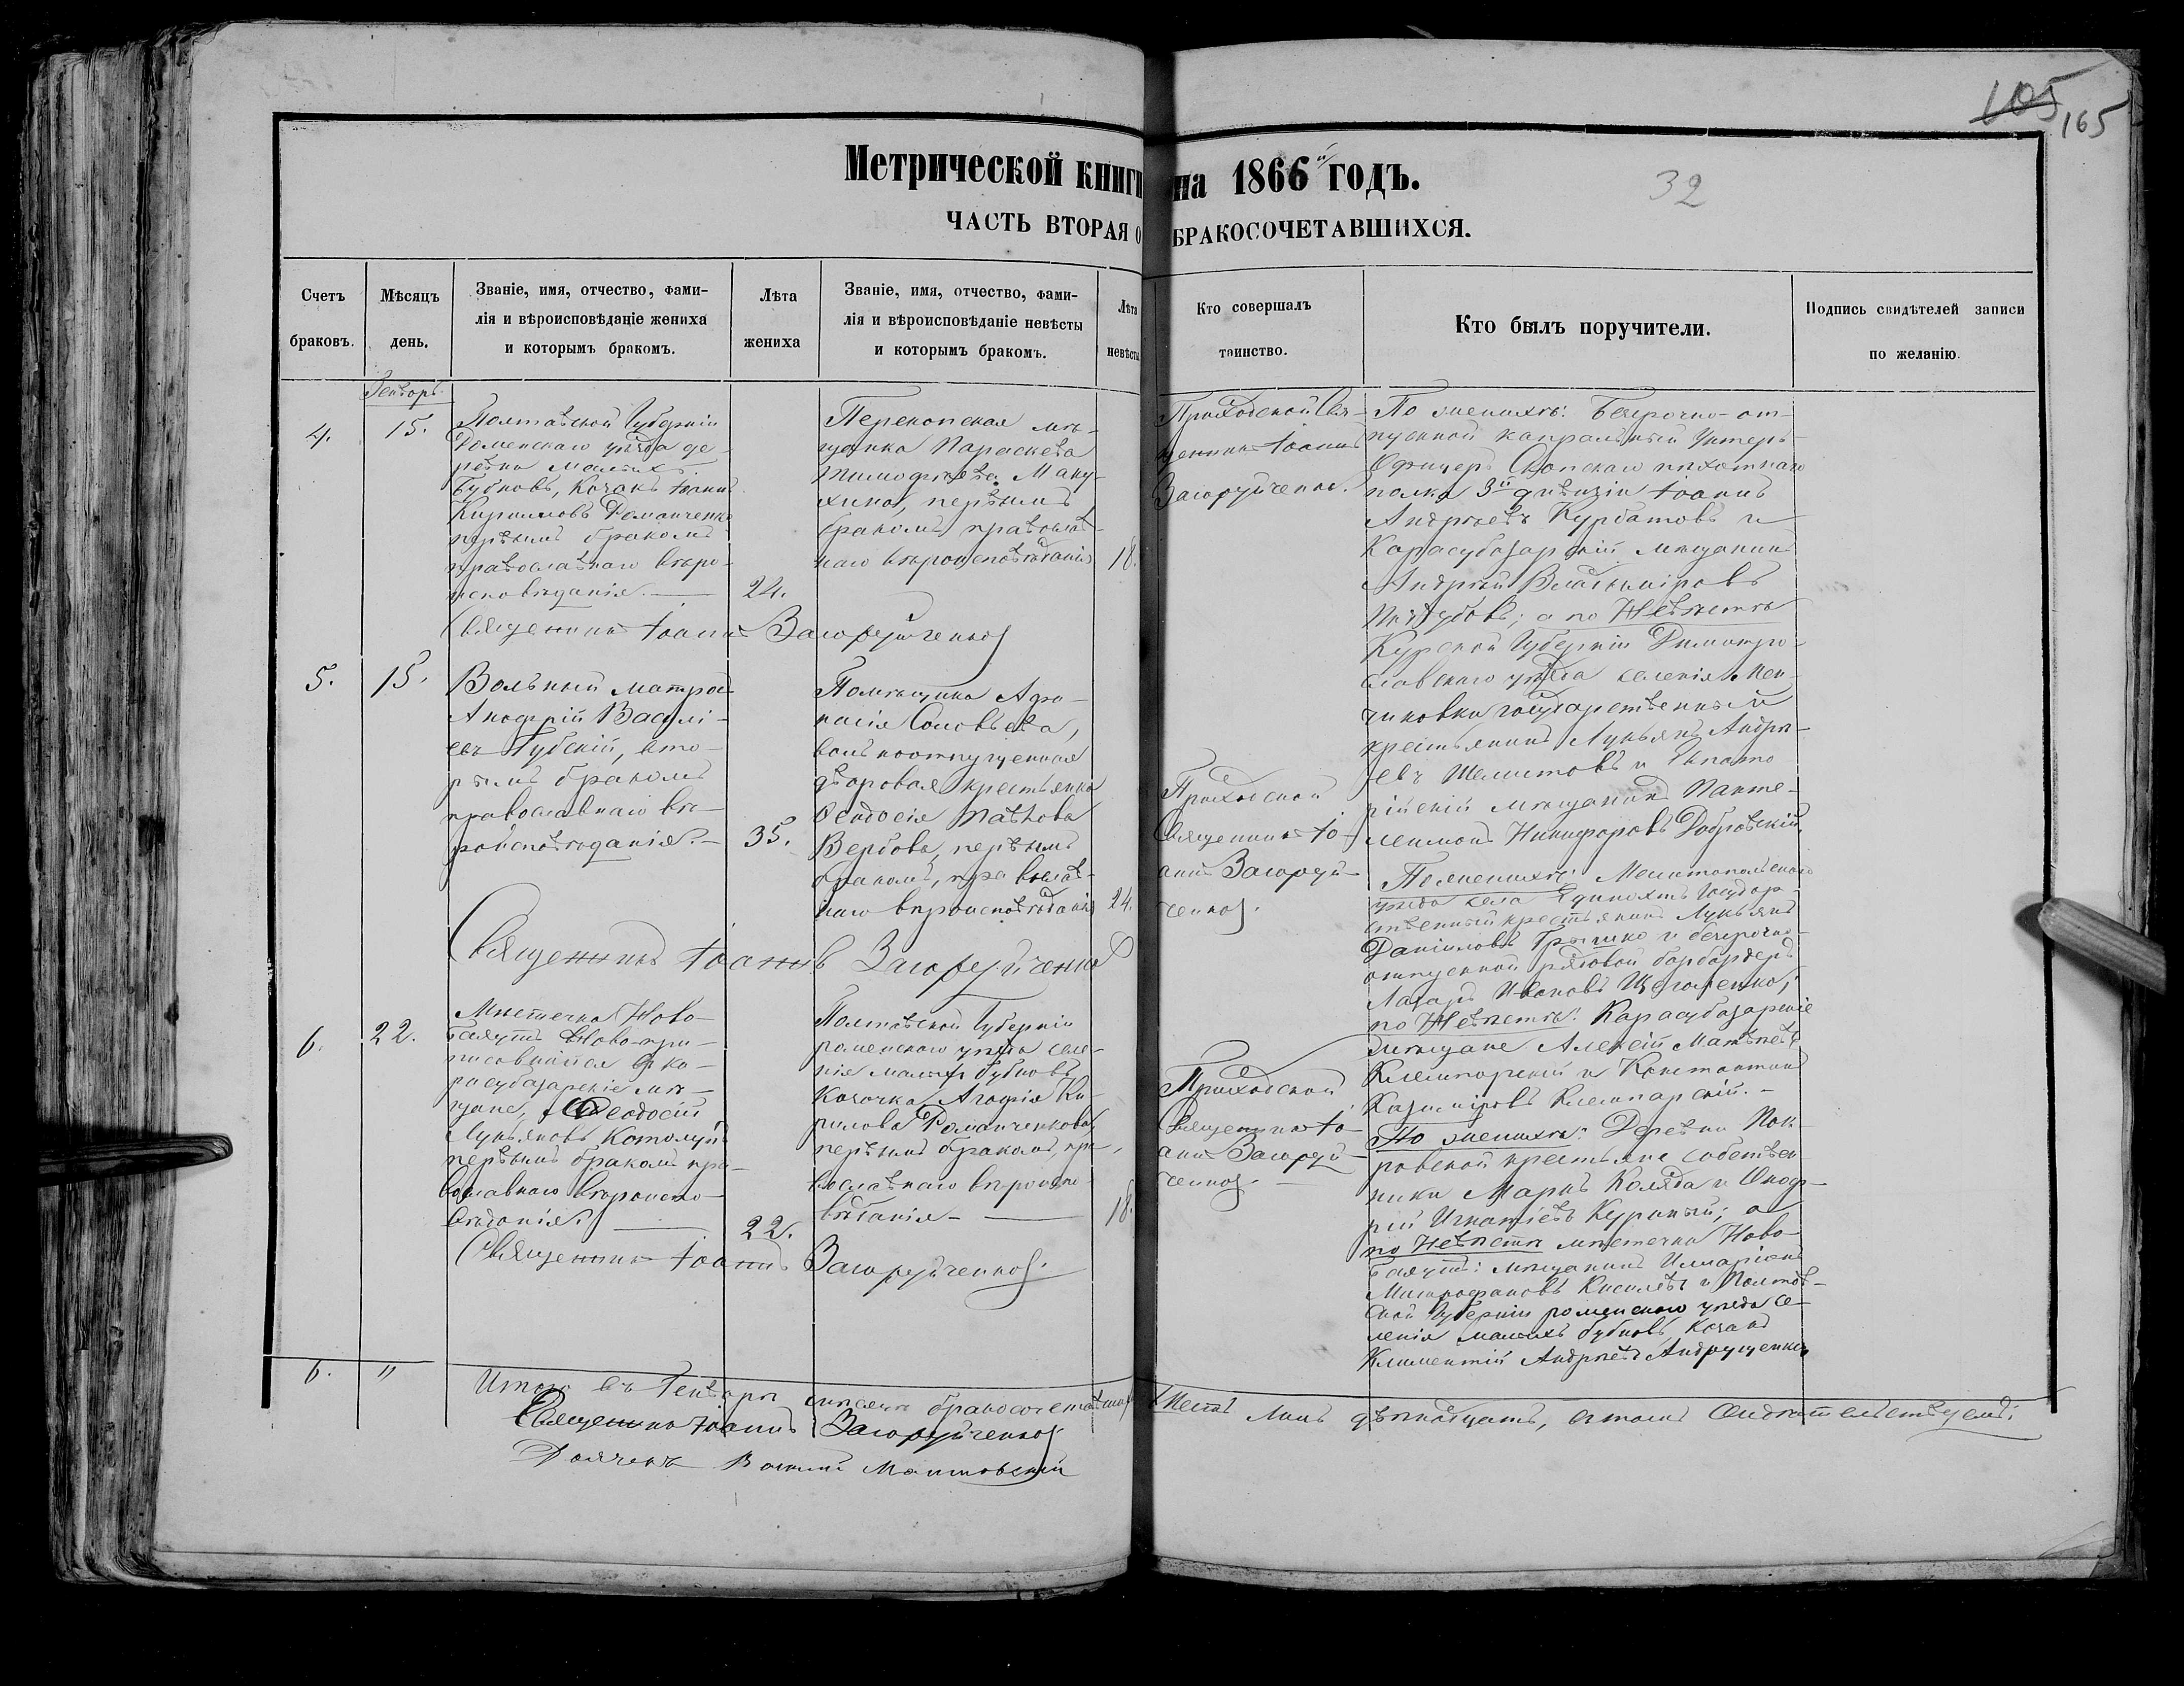 105 165
Метрической книги на 1866й годъ.
32
ЧАСТЬ ВТОРАЯ О БРАКОСОЧЕТАВШИХСЯ.
Счетъ
браковъ.
Мѣсяцъ
день.
Званіе, имя, отчество, фами-
лія и вѣроисповѣданіе жениха
и которымъ бракомъ.
Лѣта
жениха
Званіе, имя, отчество, фами-
лія и вѣроисповѣданіе невѣсты
и которымъ бракомъ.
Лѣта
невѣсты
Кто совершалъ
таинство.
Кто былъ поручители.
Подпись свидѣтелей записи
по желанію.
Генворь
4.
15.
Полтавской Губерніи
Роменскаго уѣзда де-
ревни Малыхъ
Бубновъ, Козакъ Іоаннъ
Кирилловъ Романченко
первымъ бракомъ
православнаго вѣро-
исповѣданія.
24.
Перекопская мѣ-
щанка Параскева
Тимофѣева Маку-
хина, первымъ
бракомъ православ-
наго вѣроисповѣданія
18.
Приходской Свя-
щенникъ Іоаннъ
Загоруйченко.
Священникъ Іоаннъ Загоруйченко
По женихѣ: Безсрочно-от-
пускной капральный Унтеръ
Офицеръ пѣхотнаго
полка 3й дивизіи Іоаннъ
Андреевъ Курбатовъ и
Карасубазарскій мѣщанинъ
Андрей Владиміровъ
а по Невѣстѣ
Курской Губерніи Димитро-
славскаго уѣзда селенія Мен-
чиковки государственный
крестьянинъ Лукьянъ Андре-
евъ Шелистовъ и
мѣщанинъ Панте-
леимонъ Никифоровъ Добровскій.
5.
15.
Вольный матрос
Анофрій Василі-
евъ Губскій, вто-
рымъ бракомъ
православнаго вѣ-
роисповѣданія.
35.
Помѣщика Афа-
насія Соловьева,
вольноотпущенная
дворовая крестьянка
Феодосія Павлова
Вербова, первымъ
бракомъ, православ-
наго вѣроисповѣданія
24.
Приходской
Священникъ Іо-
аннъ Загоруй-
ченко.
Священникъ Іоаннъ Загоруйченко
По женихѣ: Мелитопольскаго
уѣзда села Государ-
ственный крестьянинъ Лукьянъ
Даніиловъ Гришко и безсрочно-
отпускной рядовой бомбардеръ
Лазарь Ивановъ
по Невѣстѣ: Карасубазарскіе
мѣщане Алексій Матвѣевъ
Клемпарскій и Константинъ
Казиміровъ Клемпарскій.
6.
22.
Мѣстечка Ново-
Баяутъ Ново-при-
писавшійся ка-
расубазарскіе мѣ-
щане, Феодосій
Лукьяновъ Котолуп
первымъ бракомъ пра-
вославнаго вѣроиспо-
вѣданія.
22.
Полтавской Губерніи
роменскаго уѣзда селе-
нія малыхъ бубновъ
Козачка Агафія Ки-
рилова Романченкова
первымъ бракомъ, пра-
вославнаго вѣроиспо-
вѣданія
18.
Приходской
Священникъ Іо-
аннъ Загоруй-
ченко.
Священникъ Іоаннъ Загоруйченко.
По женихѣ: Деревни Пок-
ровской крестьяне собствен-
ники Маркъ Коляда и Оноф-
рій Игнатіевъ Куриный; а
по Невѣстѣ мѣстечка Ново-
Баяутъ: мѣщанинъ Илларіонъ
Митрофановъ Киселевъ и Полтав-
ской Губерніи роменскаго уѣзда се-
ленія малыхъ бубновъ Козакъ
Климентій Андреевъ Андрущенко
6. "
Итого въ Генварѣ мѣсяцѣ бракосочетавшихся шесть лицъ двѣнадцать, въ томъ свидѣтельствуемъ:
Священникъ Іоаннъ Загоруйченко
Дьячекъ Василій